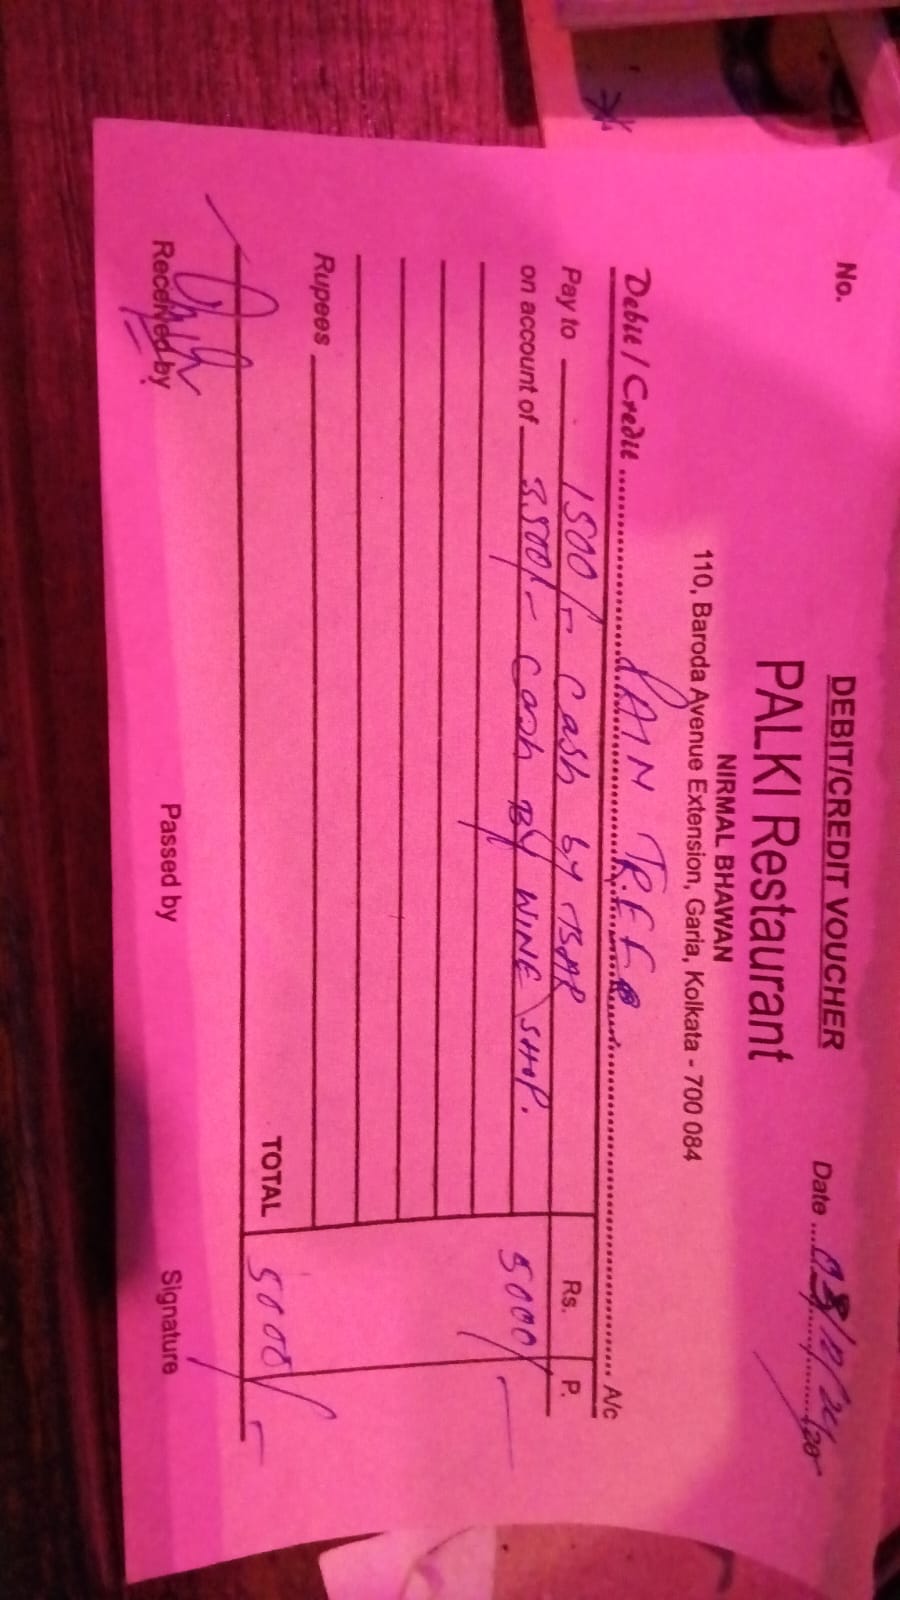 DEBIT/CREDIT VOUCHER
No.
PALKI Restaurant
Date
NIRMAL BHAWAN
110, Baroda Avenue Extension, Garia, Kolkata - 700 084
Debit / Credit TREE A/c
Rs. P.
Pay to 1500/- Cash by BAR
on account of 3,500/- Cash BY WINE SHOP. 5000/-
Rupees
TOTAL 5000/-
Received by Passed by Signature